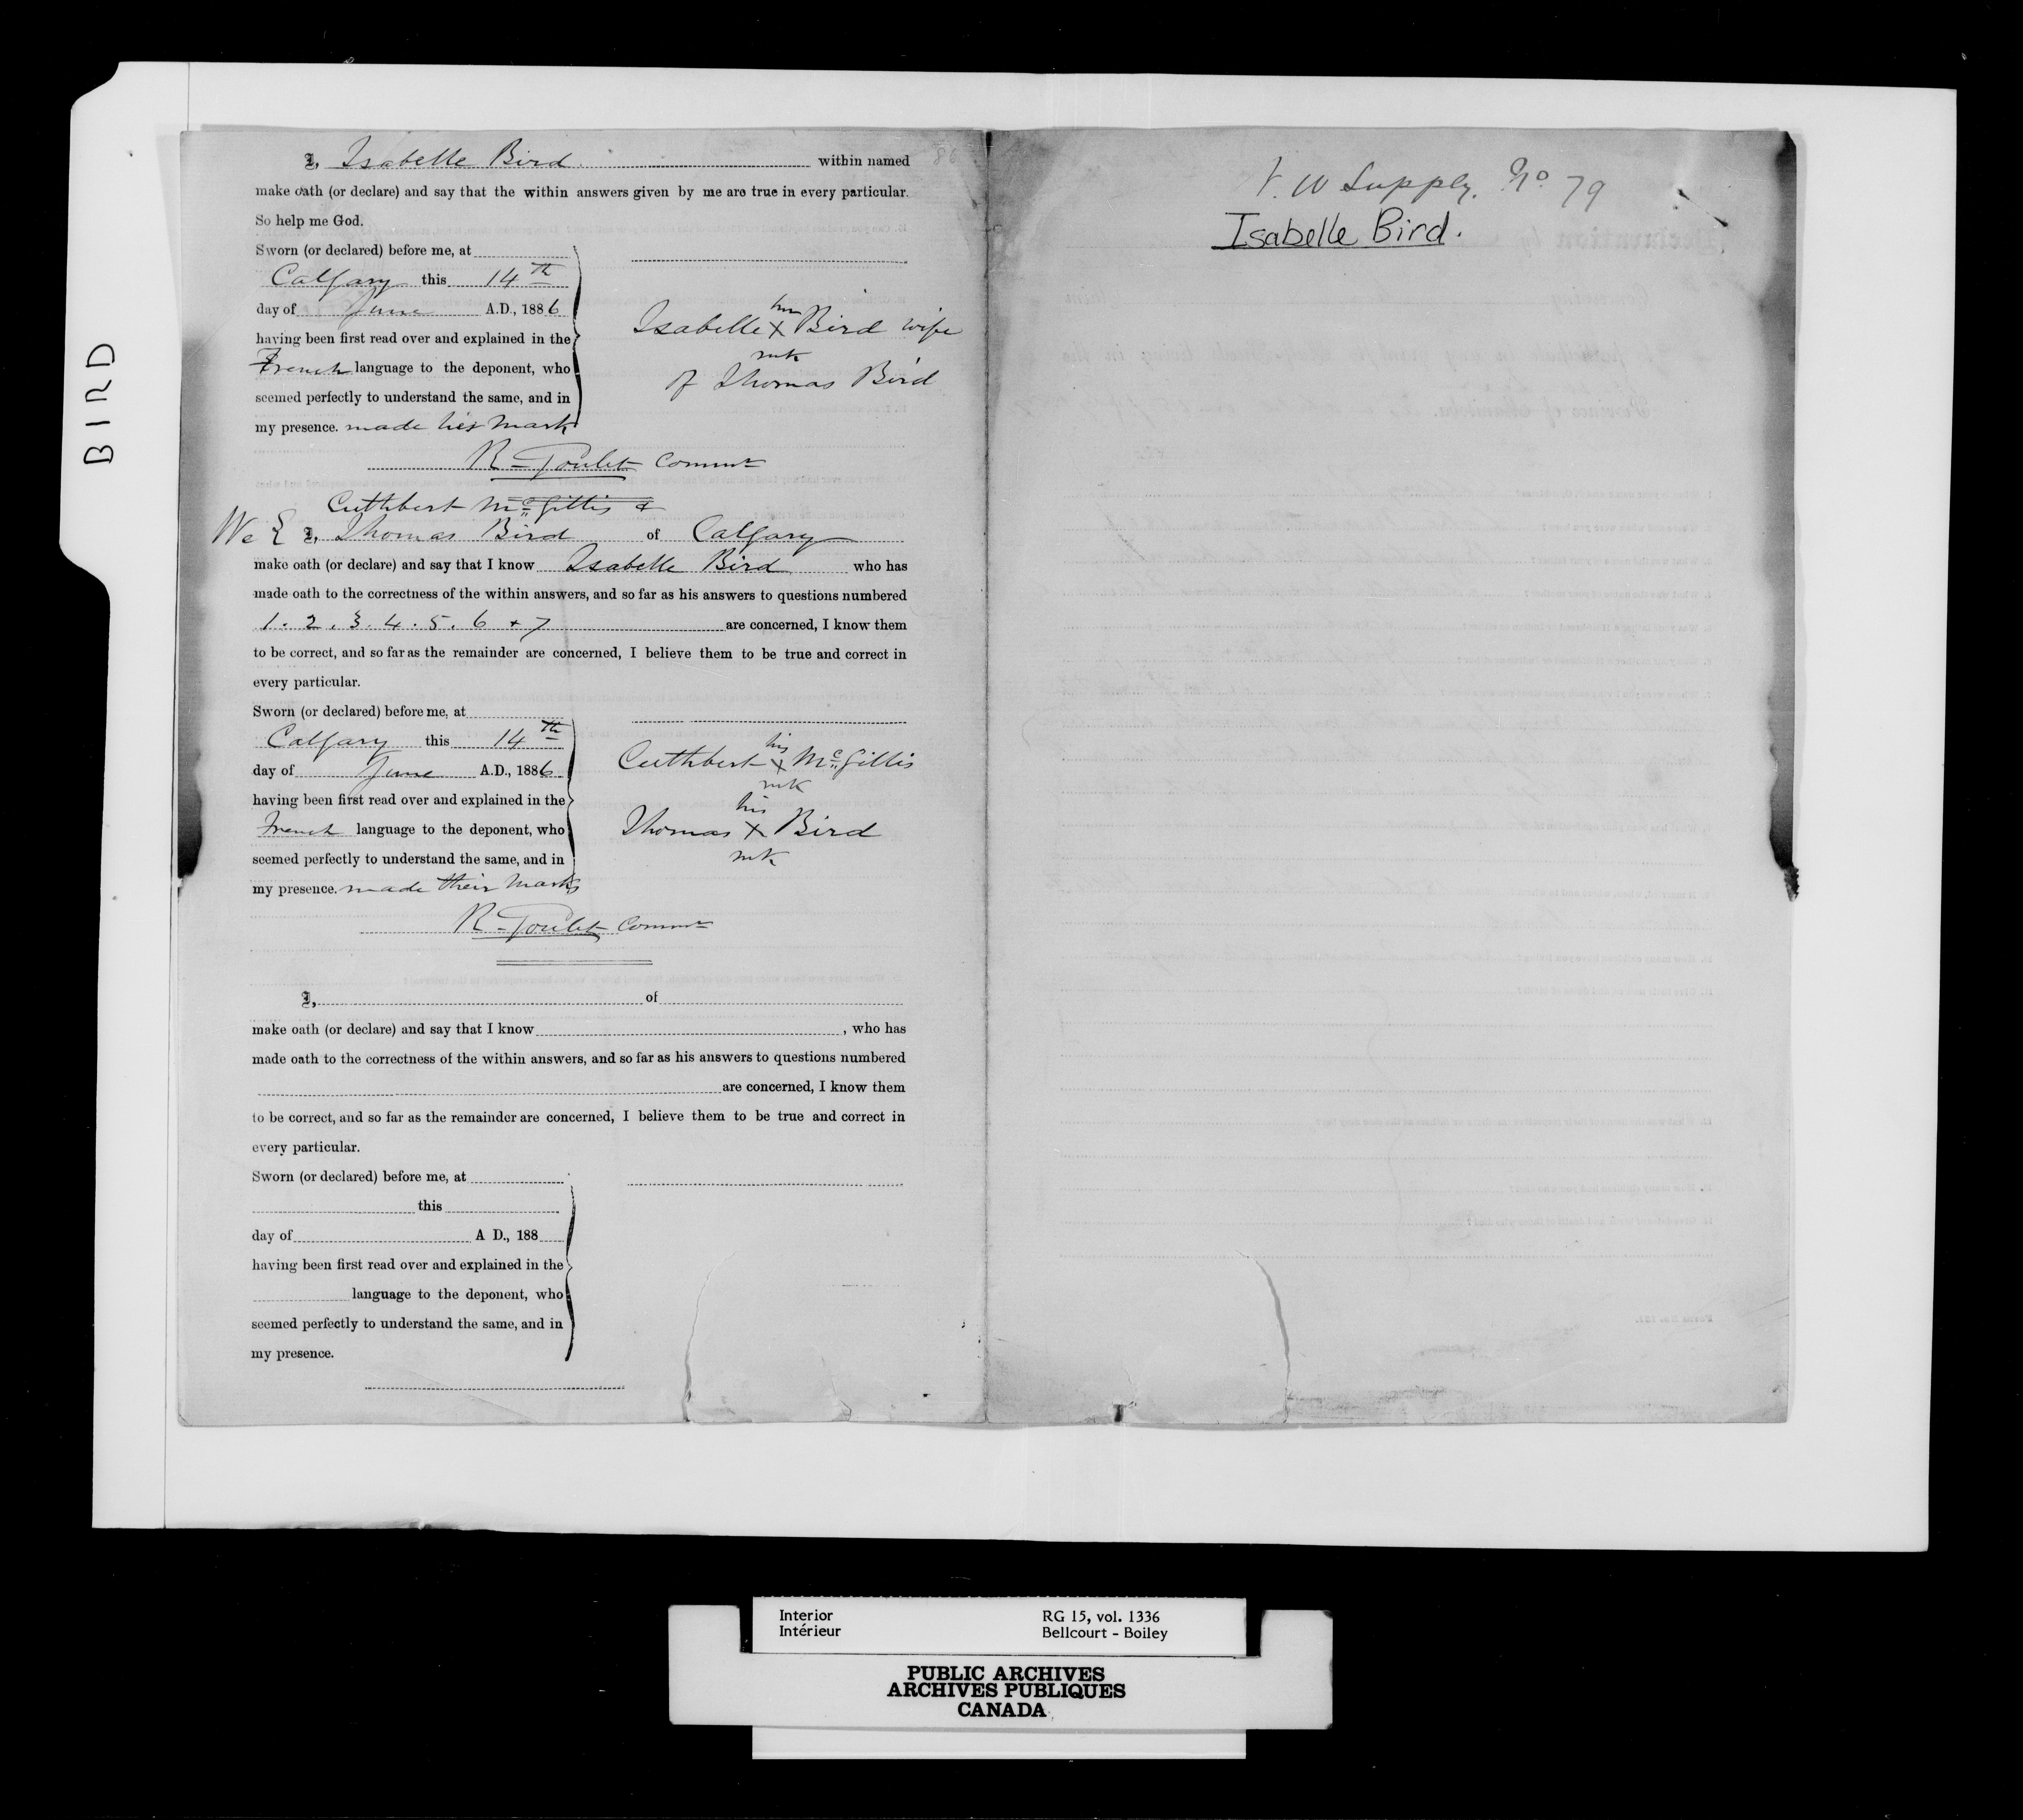 BIRD
I, Isabelle Bird within named
make oath (or declare) and say that the within answers given by me are true in every particular.
So help me God.
Sworn (or declared) before me, at
Calgary this 14th
day of June A.D., 1886
having been first read over and explained in the
French language to the deponent, who
seemed perfectly to understand the same, and in
my presence. made her mark
her
Isabelle X Bird wife
mk
of Thomas Bird
R. Goulet Commr
Cuthbert McGillis &
We { I, Thomas Bird of Calgary
make oath (or declare) and say that I know Isabelle Bird who has
made oath to the correctness of the within answers, and so far as his answers to questions numbered
1. 2. 3. 4. 5. 6 + 7 are concerned, I know them
to be correct, and so far as the remainder are concerned, I believe them to be true and correct in
every particular.
Sworn (or declared) before me, at
Calgary this 14th
day of June A.D., 1886
having been first read over and explained in the
French language to the deponent, who
seemed perfectly to understand the same, and in
my presence. made their marks
his
Cuthbert X McGillis
mk
his
Thomas X Bird
mk
R. Goulet Commr
I, of
make oath (or declare) and say that I know , who has
made oath to the correctness of the within answers, and so far as his answers to questions numbered
are concerned, I know them
to be correct, and so far as the remainder are concerned, I believe them to be true and correct in
every particular.
Sworn (or declared) before me, at
this
day of A D., 188
having been first read over and explained in the
language to the deponent, who
seemed perfectly to understand the same, and in
my presence.
W Supply. No 79
Isabelle Bird.
Interior
Intérieur
RG 15, vol. 1336
Bellcourt - Boiley
PUBLIC ARCHIVES
ARCHIVES PUBLIQUES
CANADA